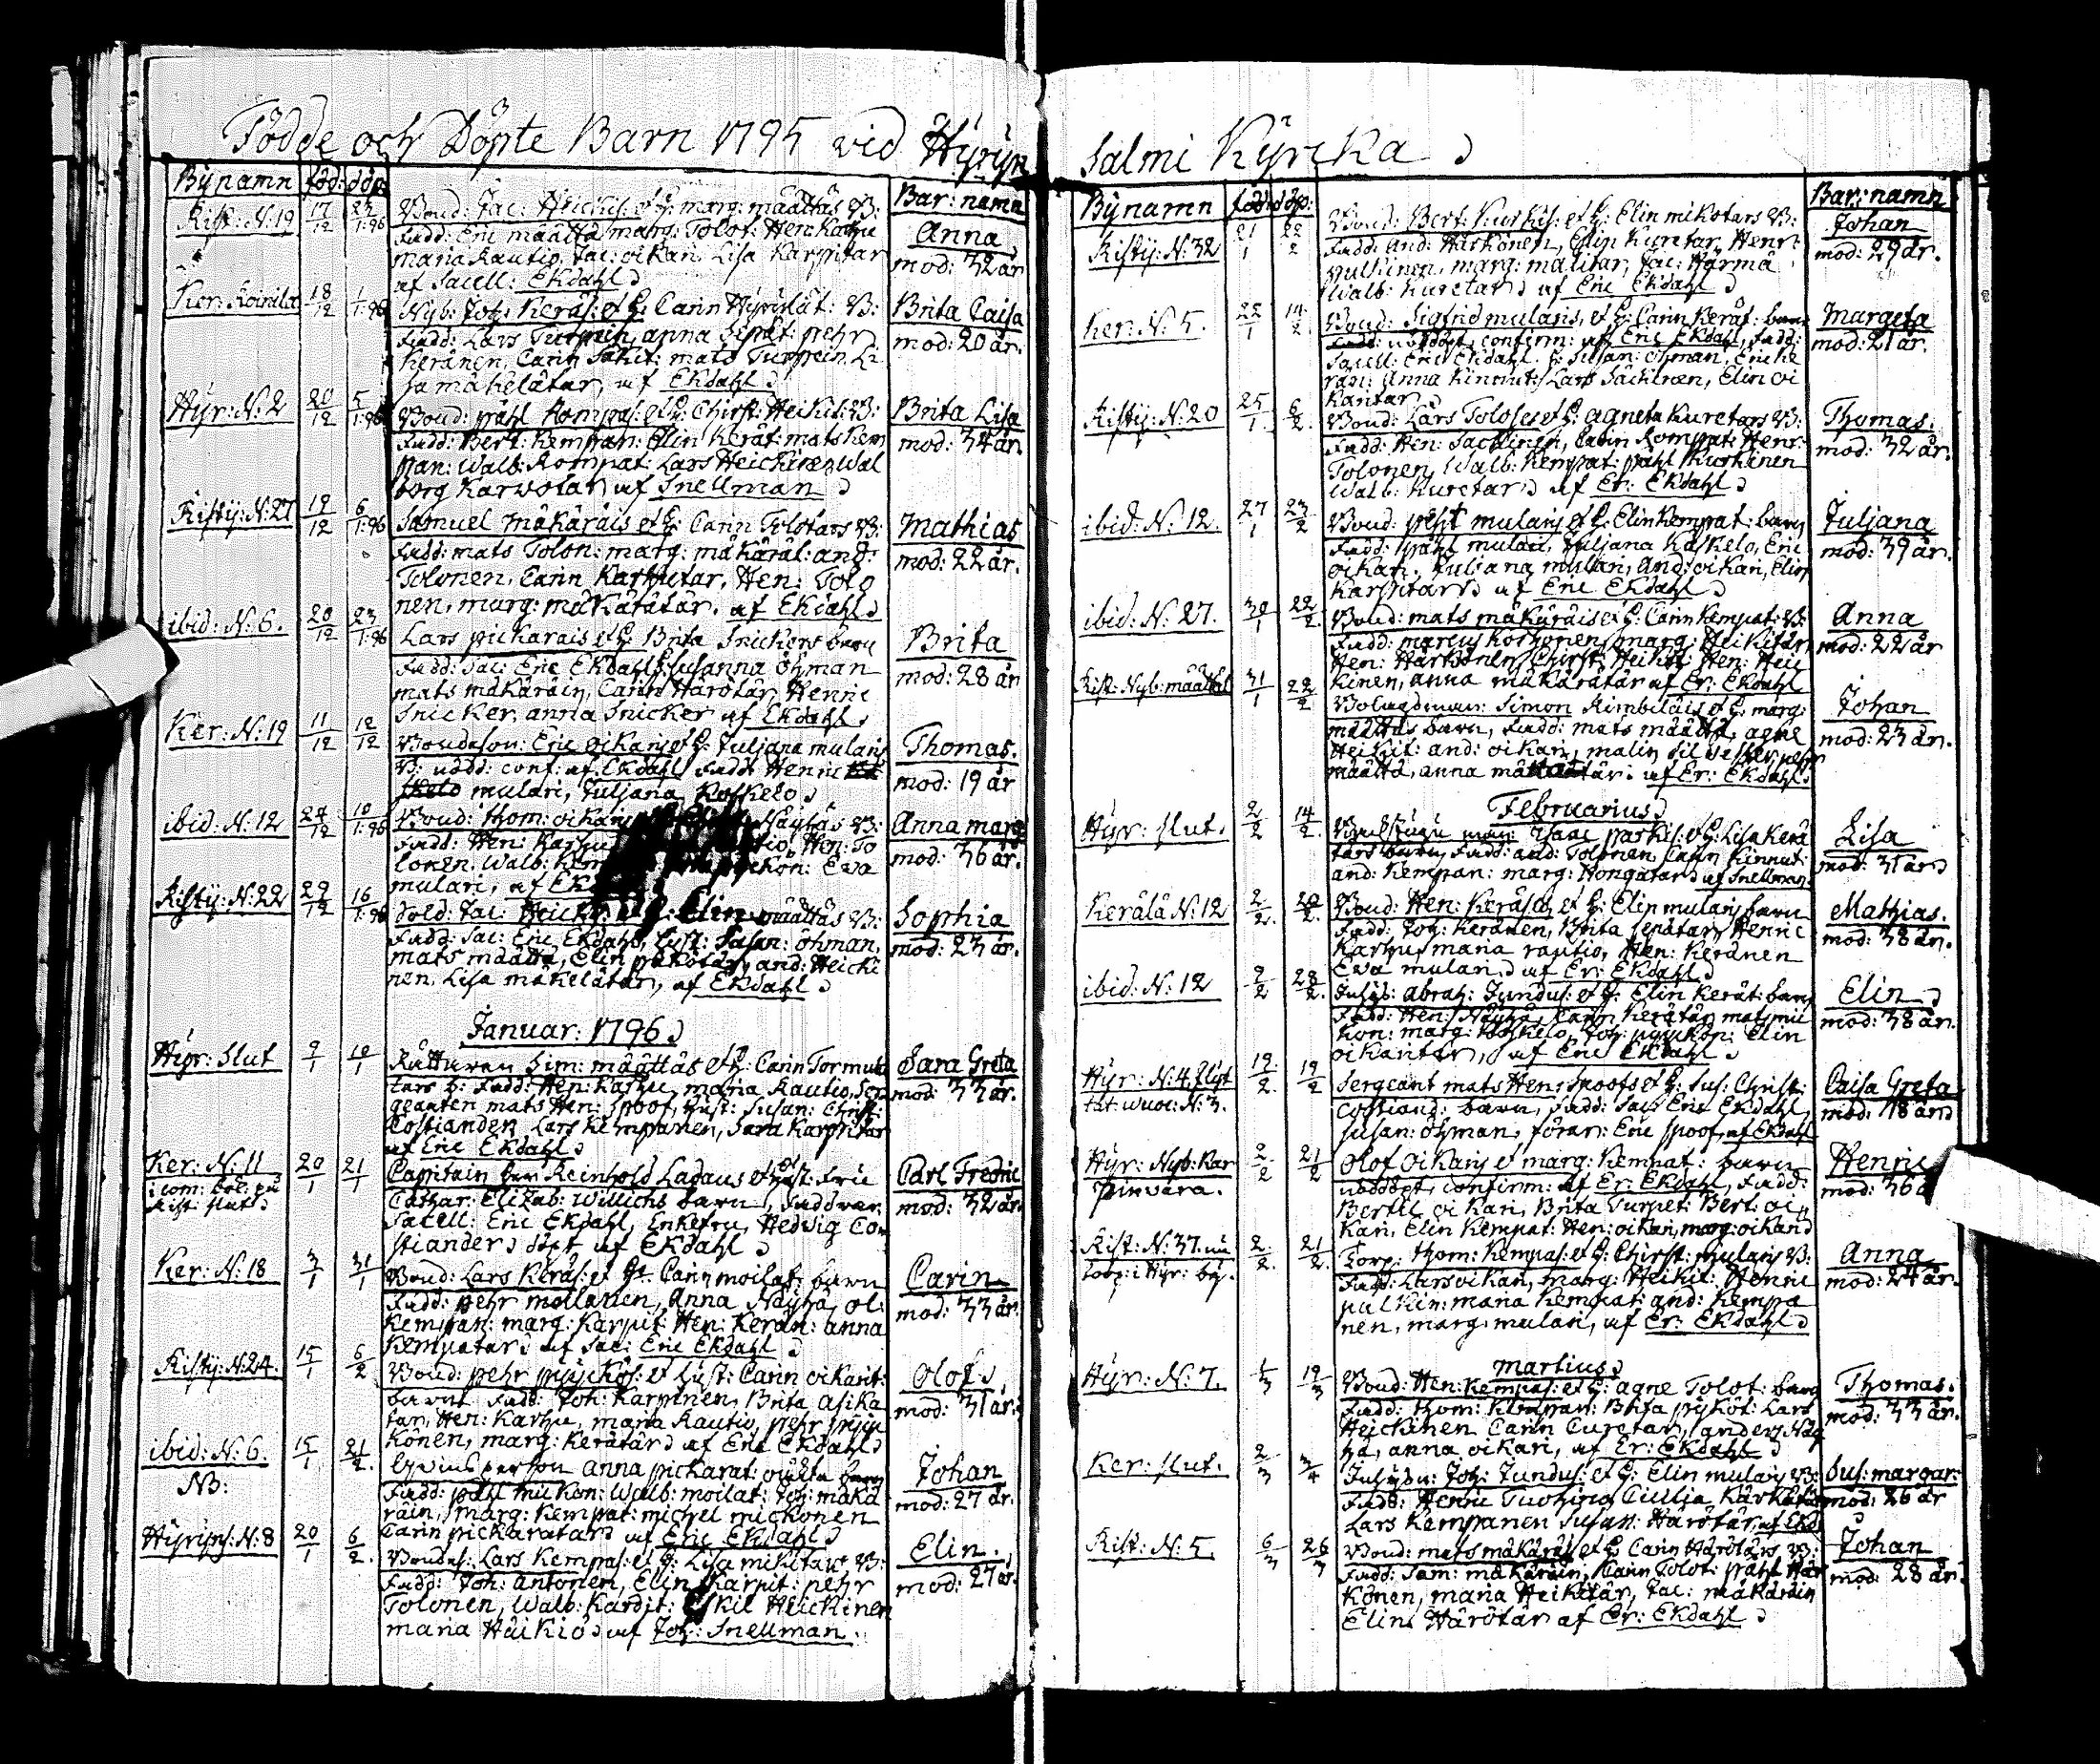 Födde och Döpte Barn 1795 vid Hyryn
Bynamn föd: döp: Bar: namn
Rist: N: 19 17/12 23/1:96 Bond: Jac: Heickis: et H: marg: määttäs B: Anna
Fadd: Eric määttä marg: Tolot: Hen: Karhu mod: 32 år
maria Rautio, Jac: oikari Lisa Karpitar
af Sacell: Ekdahl
Ker: Koinila 18/12 1/1:96 Nyb: Joh: Keräs: et H: Carin Hyryilät: B: Brita Caisa
Fadd: Lars Turpein, anna Sepät: pehr mod: 20 år.
Keränen, Carin mats Turpein Li
sa mäkelätar, af Ekdahl
Hyr: N: 2 20/12 5/1:96 Bond: påhl Kempas: et H: Christ: Heikit: B: Brita Lisa
Fadd: Bert: Kempan: Elin Kerät: mats Kem mod: 34 år.
pan: Walb: Kompat: Lars Heickinen Wal
borg Karvotar af Snellman
Risty: N: 27 19/12 6/1:96 Samuel mäkäräis et H: Carin Tolotars B: Mathias
Fadd: mats Tolon: marg: mäkärät: and: mod: 22 år.
Tolonen, Carin Karhutar, Hen: Tolo
nen, marg: mäkärätär. af Ekdahl
ibid: N: 6. 20/12 23/1:96 Lars pickarais et H: Brita Snickers barn Brita
Fadd: Sac: Eric Ekdahl H: Susanna öhman mod: 28 år
mats mäkäräin, Carin Härötär, Henric
Snicker anna Snicker af Ekdahl
Ker: N: 19 11/12 12/12 Bondeson: Eric oikaris et H: Juljana mularis Thomas.
B: nödd: conf: af Ekdahl Fadd: Henric mod: 19 år
mulari, Juljana Koskelo
ibid: N: 12 24/12 10/1:96 Bond: Thom: oikaris Näyhäs B: Anna marg:
Fadd: Hen: Karhu Hen: To mod: 36 år.
lonen. Walb: Eva
mulari, af
Risty: N: 22 29/12 16/1:96 Sold: Jac: Heickis: et H: Elin määttäs B: Sophia
Fadd: Sac: Eric Ekdahl, Hust: Susan: öhman, mod: 23 år.
mats määttä, Elin and: Heicki
nen, Lisa mäkelätar, af Ekdahl
Januar: 1796
Hyr: Slut 9/1 10/1 Sim: määttäs et H: Carin Tormuta Sara Greta
tars B: Fadd: Hen: Karhu, maria Rautio, Ser mod: 33 år.
geanten mats Hen: Spoof, Hust: Susan: Christ:
Costiander Lars Kempanen, Sara Karpitar
af Eric Ekdahl
Ker: N: 11 20/1 21/1 Capitain Reinhold Ladaus et Hust: Fru Carl Fredric
Cathar: Elizab: Willichs barn, Fadd: mod: 32 år.
Sacell: Eric Ekdahl, Enkefru, Hedvig Co
stiander döpt af Ekdahl
Ker: N: 18 3/1 31/1 Bond: Lars Keräs: et H: Carin moilat: barn Carin
Fadd: pehr mollarien, Anna Näyhä, ol: mod: 33 år.
Kempan: marg: Karpit: Hen: Kerän: anna
Kempatar af Sac: Eric Ekdahl
Risty: N: 24. 15/1 6/2 Bond: pehr pyyckös: et Hust: Carin oikarit: Olof
barn Fadd: Joh: Karpinen, Brita asika mod: 31 år.
tar, Hen: Karhu, maria Rautio, pehr pyyc
könen, marg: Kerätär af Eric Ekdahl
ibid: N: 6. 15/1 21/2 anna pickarat: oäkta barn Johan
NB: Fadd: påhl mickon: Walb: moilat: Joh: mäkä mod: 27 år.
räin, marg: Kempat: michel mickonen
Carin pickaratar af Eric Ekdahl
Hyryns: N: 8 20/1 6/2 Bondes: Lars Kempas: et H: Lisa mikitars B: Elin.
Fadd: Joh: Antonen, Elin Karpit: pehr mod: 27 år.
Tolonen, Walb: Karpit: Eskil Heickinen
maria Häikiö af Joh: Snellman.
Salmi Kyrcka
Bynamn föd: döp: Bar: namn
Risty: N: 32 21/1 22/2 Bond: Bert: Kurkis: et H: Elin mikotars B: Johan
Fadd: And: Härkönen, Elin Kuretar, Henr: mod: 29 år.
pulkinen, marg: malitar, Jac: Härmä
Walb: Kuretar af Eric Ekdahl
Ker: N: 5. 22/1 14/2 Bond: Sigfrid mularis, et H: Carin Kerät: barn Margeta
nöddöpt, confirm: af Eric Ekdahl, Fadd: mod: 21 år.
Sacell: Eric Ekdahl. H: Susan: öhman, Eric Ke
rän: Anna Kinnut: Lars Säckinen, Elin oi
karitar
Risty: N: 20 25/1 6/2 Bond: Lars Tolos: et H: agneta Kuretars B: Thomas.
Fadd: Hen: Carin Kompat: Henr: mod: 32 år.
Tolonen, Walb: Kempat: påhl Kurkinen
Walb: Kuretar af Er: Ekdahl
ibid: N: 12. 27/1 23/2 Bond: mularis et H: Elin Kempat: barn Juljana
Fadd: påhl mulari, Juljana Koskelo, Eric mod: 39 år.
oikari. Juliana mulari, And: oikari, Elin
Karpitar af Eric Ekdahl
ibid: N: 27. 30/1 22/2 Bond: mats mäkäräis et H: Carin Kempat: B: Anna
Fadd: marcus Korhonen, marg: Heikitär mod: 22 år
Hen: Härkönen, Christ: Heikit: Hen: Heic
kinen, anna mäkärätär af Er: Ekdahl
Rist: Nyb: määttäl 31/1 22/2 Simon Kimbiläis et H: marg: Johan
määttäs barn, Fadd: mats määttä, agne mod: 23 år.
Heikit: and: oikari, malin Silvester pehr
määttä, anna af Er: Ekdahl
Februarius
Hyr: slut. 2/2 14/2 Isaac parkis: et H: Lisa Kerä Lisa
tars barn, Fadd: and: Tolonen Carin Kinnut: mod: 31 år
and: Kempan: marg: Hongatar af Snellman.
Kerälä N: 12 2/2 20/2 Bond: Hen: Keräs: et H: Elin mularis barn Mathias.
Fadd: Joh: Keränen, Brita Sepätar, Henric mod: 38 år.
Karhu maria rautio, Hen: Keränen
Eva mulari af Er: Ekdahl
ibid: N: 12 2/2 28/2 Inhys: Abrah: Jundus: et H: Elin Kerät: barn Elin
Fadd: Hen: Näyhä, Carin Kerätär mats mic mod: 38 år.
kon: marg: Koskelo, Joh: pyyckön: Elin
oikaritar, af Eric Ekdahl
Hyr: N: 4. flyt 19/2 19/2 Sergeant mats Hen: Spoofs et H: Sus: Christ: Caisa Greta
N: 3. Costiand: barn, Fadd: Sac: Eric Ekdahl, mod: 48 år
Susan: öhman, förar: Eric Spoof, af Ekdahl
Hyr: Nyb: Kar 2/2 21/2 Olof oikaris et marg: Kempat: barn Henric
pinvara. nöddöpt, confirm: af Er: Ekdahl, Fadd: mod: 36
Bertil oikari, Brita Turpet: Bert: oi
kari, Elin Kempat: Hen: oikari, marg: oikari
Rist: N: 37. nu 2/2 21/2 Torp: Thom: Kempas: et H: Christ: mularis B: Anna
torp: i Hyr: by. Fadd: Lars oikari, marg: Heikit: Henric mod: 24 år.
pulkin: maria Kempat: and: Kempa
nen, marg: mulari, af Er: Ekdahl
Martius
Hyr: N: 7. 1/3 19/3 Bond: Hen: Kempas: et H: agne Tolot: barn Thomas.
Fadd: Thom: Kempan: Brita pyköt: Lars mod: 33 år.
Heickinen Carin Curetar, anders Näy
hä, anna oikari, af Er: Ekdahl
Ker: slut. 2/3 3/4 Joh: Jundus: et H: Elin mularis B: Sus: margar:
Fadd: Henric Cicilia mod: 26 år
Lars Kempanen Susan: Härötär af Ekd:
Rist: N: 5. 6/3 26/3 Bond: mats mäkäräs et H: Carin Härötärs B: Johan
Fadd: Sam: mäkäräin, Carin Tolot: påhl Här mod: 28 år.
könen, maria Heikitär, Jac: mäkäräin
Elin Härötar af Er: Ekdahl